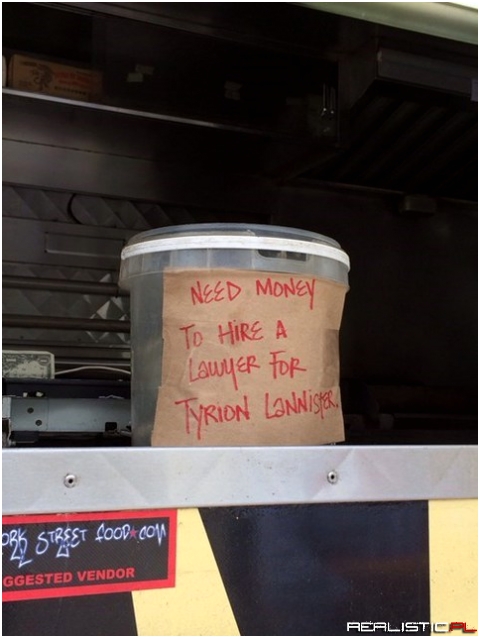 NEED MONEY
TO HIRE A
LAWYER FOR
TYRION LANNISTER.
ORK STREET FOOD★COM
GGESTED VENDOR
REALISTIC.PL